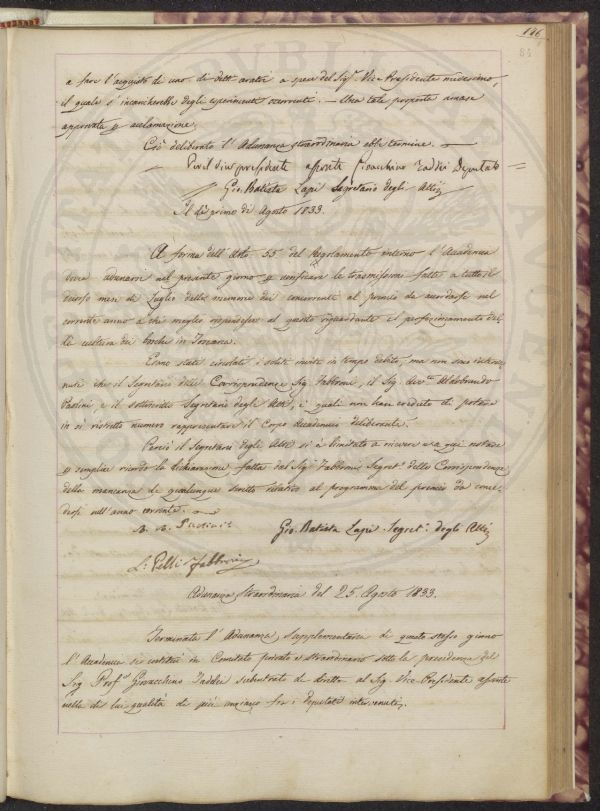 146
84
a fare l'acquisto di uno di detti aratri a spese del Sig.r Vice Presidente medesimo,
il quale s'incaricherebbe degli esperimenti occorrenti. — Una tale proposta rimase
approvata p acclamazione.
Ciò deliberato l'Adunanza straordinaria ebbe termine. —
Per il vice presidente assente Gioacchino Taddei Deputato
Gio. Batista Lapi Segretario degli Atti
Il dì primo di Agosto 1833.
A forma dell'Arto. 55 del Regolamento interno l'Accademia
dovea adunarsi nel presente giorno p verificare la trasmissione fatta a tutto il
decorso mese di Luglio delle memorie dei concorrenti al premio da accordarsi nel
corrente anno a chi meglio rispondesse al quesito riguardante il perfezionamento del-
la cultura dei boschi in Toscana.
Erano stati circolati i soliti inviti in tempo debito, ma non sono
che il Segretario delle Corrispondenze Sig. Fabbroni, il Sig. Aldobrando
Paolini, e il sottoscritto Segretario degli Atti, i quali non han creduto di potere
in sì ristretto numero rappresentare il Corpo Accademico deliberante.
Perciò il Segretario degli Atti si è limitato a ricevere e a qui notare
p semplice ricordo la dichiarazione fatta dal Sig. Fabbroni Segret.o delle Corrispondenze
della mancanza di qualunque scritto relativo al programma del premio da conce-
dersi nell'anno corrente.
Gio. Batista Lapi Segret.o degli Atti
L: Pelli Fabbroni
Adunanza straordinaria del 25. Agosto 1833.
Terminata l'Adunanza supplementaria di questo stesso giorno
l'Accademia si costituì in Comitato privato e straordinario sotto la presidenza del
Sig Prof.e Giovacchino Taddei subentrato di diritto al Sig Vice-Presidente assente
nella di lui qualità di più anziano fra i Deputati intervenuti.